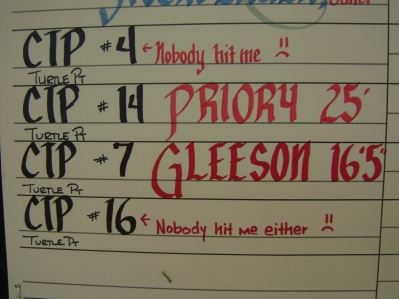 CTP #4 ← Nobody hit me
Turtle Pt
CTP #14 PRIORY 25'
Turtle Pt
CTP #7 GLEESON 16'5"
Turtle Pt
CTP #16 ← Nobody hit me either
Turtle Pt